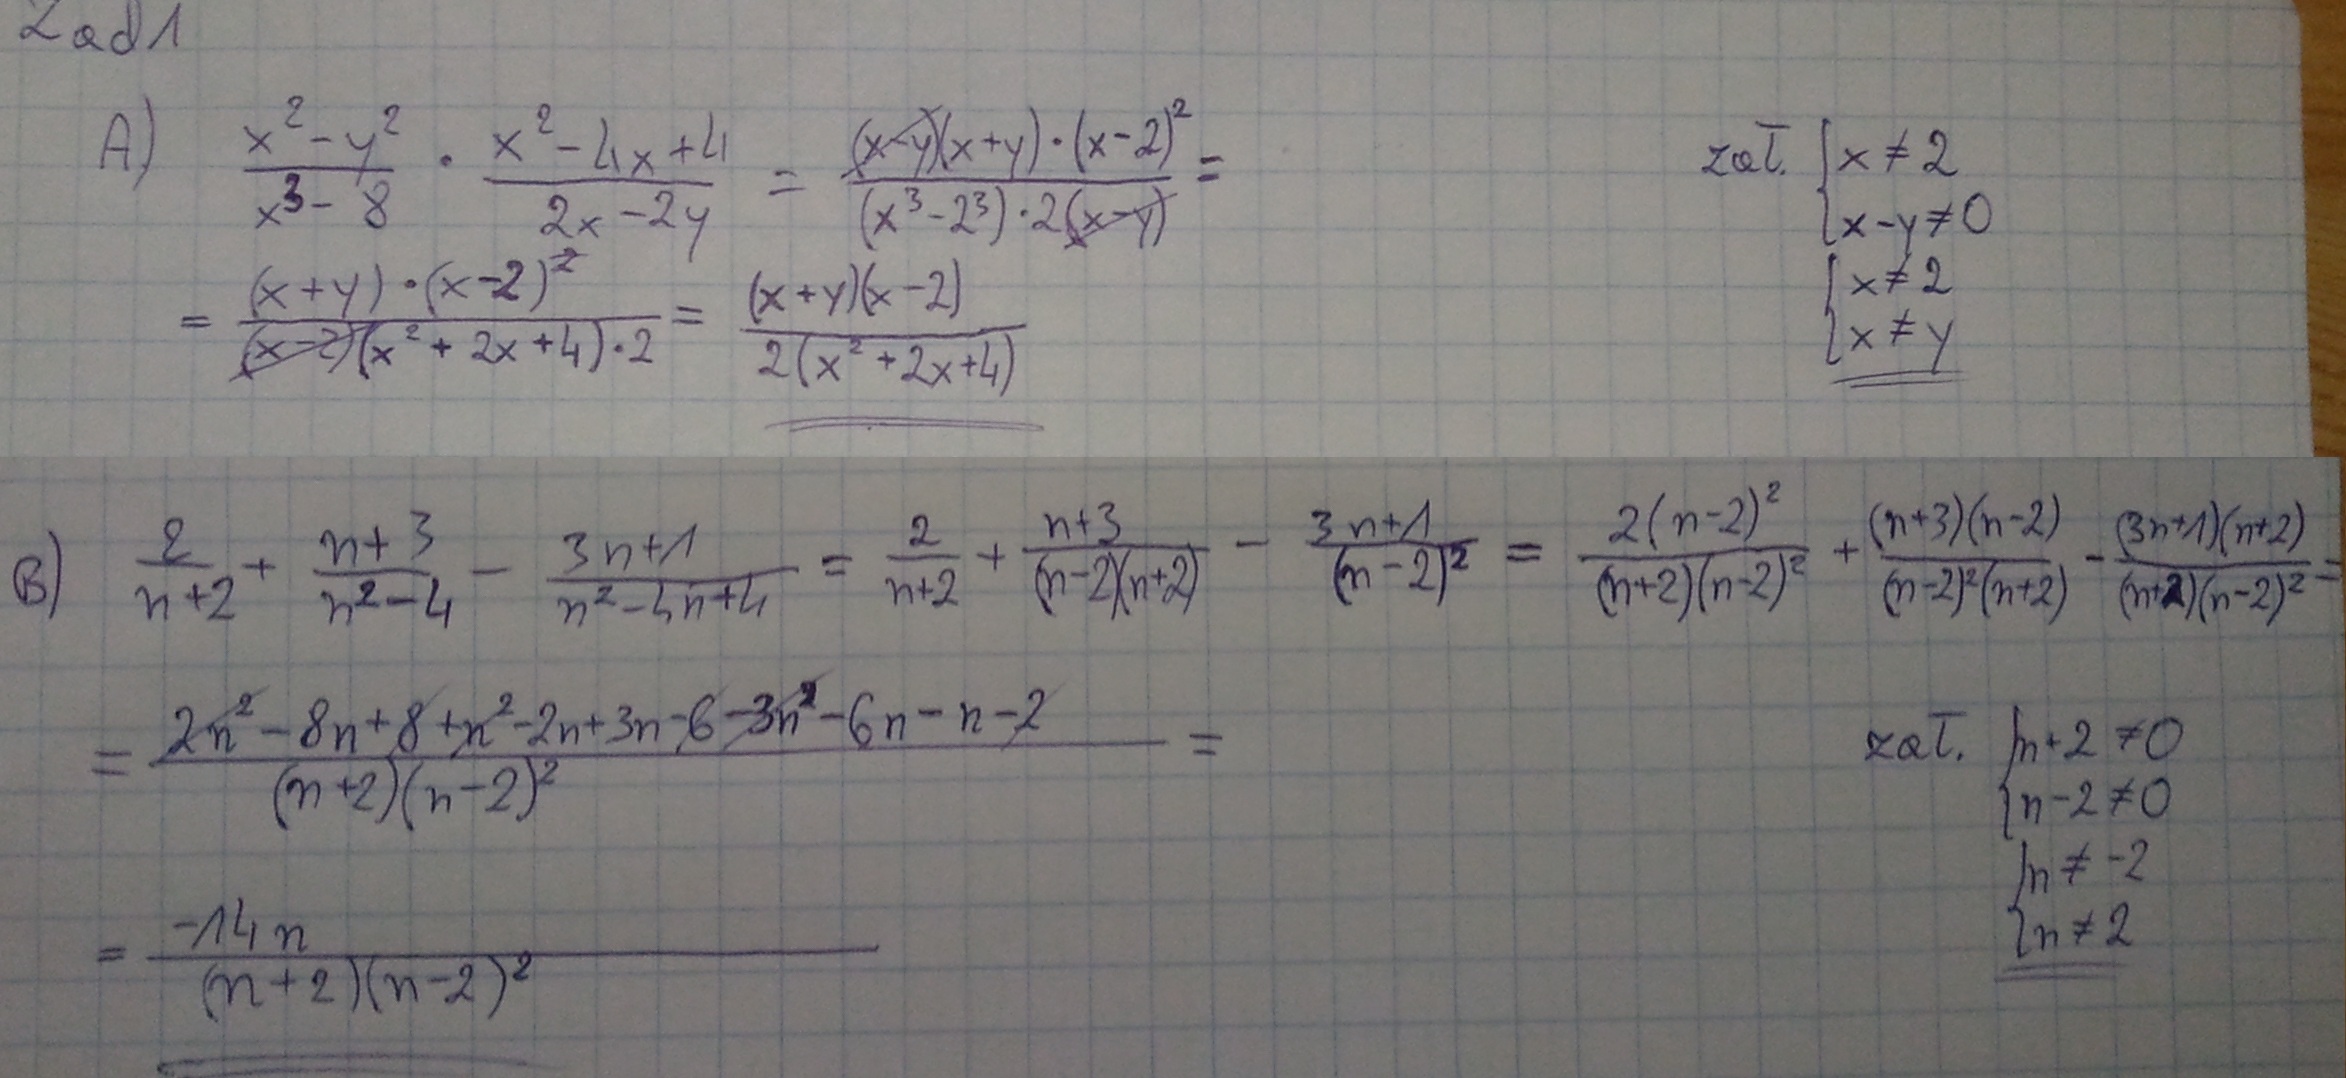 Zad 1
A) \frac{x^2-y^2}{x^3-8} \cdot \frac{x^2-4x+4}{2x-2y} = \frac{(x-y)(x+y)\cdot(x-2)^2}{(x^3-2^3)\cdot2(x-y)} =
zał. { x≠2
{ x-y≠0
{ x≠2
{ x≠y
= \frac{(x+y)\cdot(x-2)^2}{(x-2)(x^2+2x+4)\cdot2} = \frac{(x+y)(x-2)}{2(x^2+2x+4)}
B) \frac{2}{n+2} + \frac{n+3}{n^2-4} - \frac{3n+1}{n^2-4n+4} = \frac{2}{n+2} + \frac{n+3}{(n-2)(n+2)} - \frac{3n+1}{(n-2)^2} = \frac{2(n-2)^2}{(n+2)(n-2)^2} + \frac{(n+3)(n-2)}{(n-2)^2(n+2)} - \frac{(3n+1)(n+2)}{(n+2)(n-2)^2} =
= \frac{2n^2-8n+8+n^2-2n+3n-6-3n^2-6n-n-2}{(n+2)(n-2)^2} =
zał. { n+2≠0
{ n-2≠0
{ n≠-2
{ n≠2
= \frac{-14n}{(n+2)(n-2)^2}